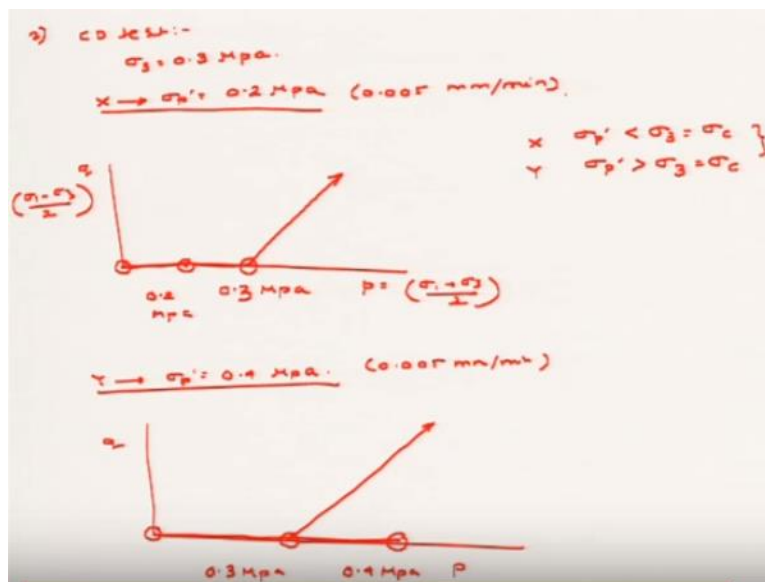 2) CD test:-
σ3 = 0.3 Mpa.
X → σp' = 0.2 Mpa (0.005 mm/min).
X σp' < σ3 = σc }
Y σp' > σ3 = σc
q
(σ1 - σ3 / 2)
0.2 Mpa 0.3 Mpa P = (σ1 + σ3 / 2)
Y → σp' = 0.4 Mpa. (0.005 mm/min)
q
0.3 Mpa 0.4 Mpa P